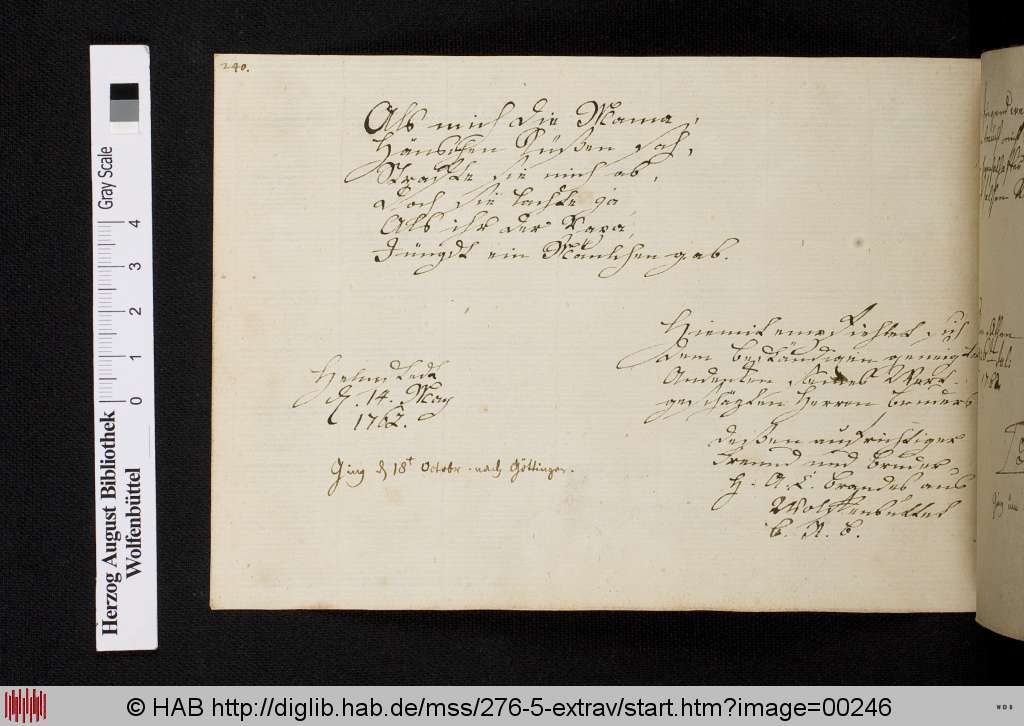 240.
Als mich die Mama,
Hänschen küßen sah,
Strafte sie mich ab,
Doch sie lachte ja
Als ihr der Papa,
Jüngst ein Mäulchen gab.
Hiemit empfiehlet sich
dem beständigen geneigten
Andenken Seines Wert-
geschäzten Herren Bruders
Helmstedt
d. 14. May
1762.
deßen aufrichtiger
Freund und Bruder
H. A. C. Brandes aus
Wolffenbüttel
Ging d 18t Octobr. nach Göttingen.
Gray Scale
0 1 2 3 4
Herzog August Bibliothek
Wolfenbüttel
© HAB http://diglib.hab.de/mss/276-5-extrav/start.htm?image=00246